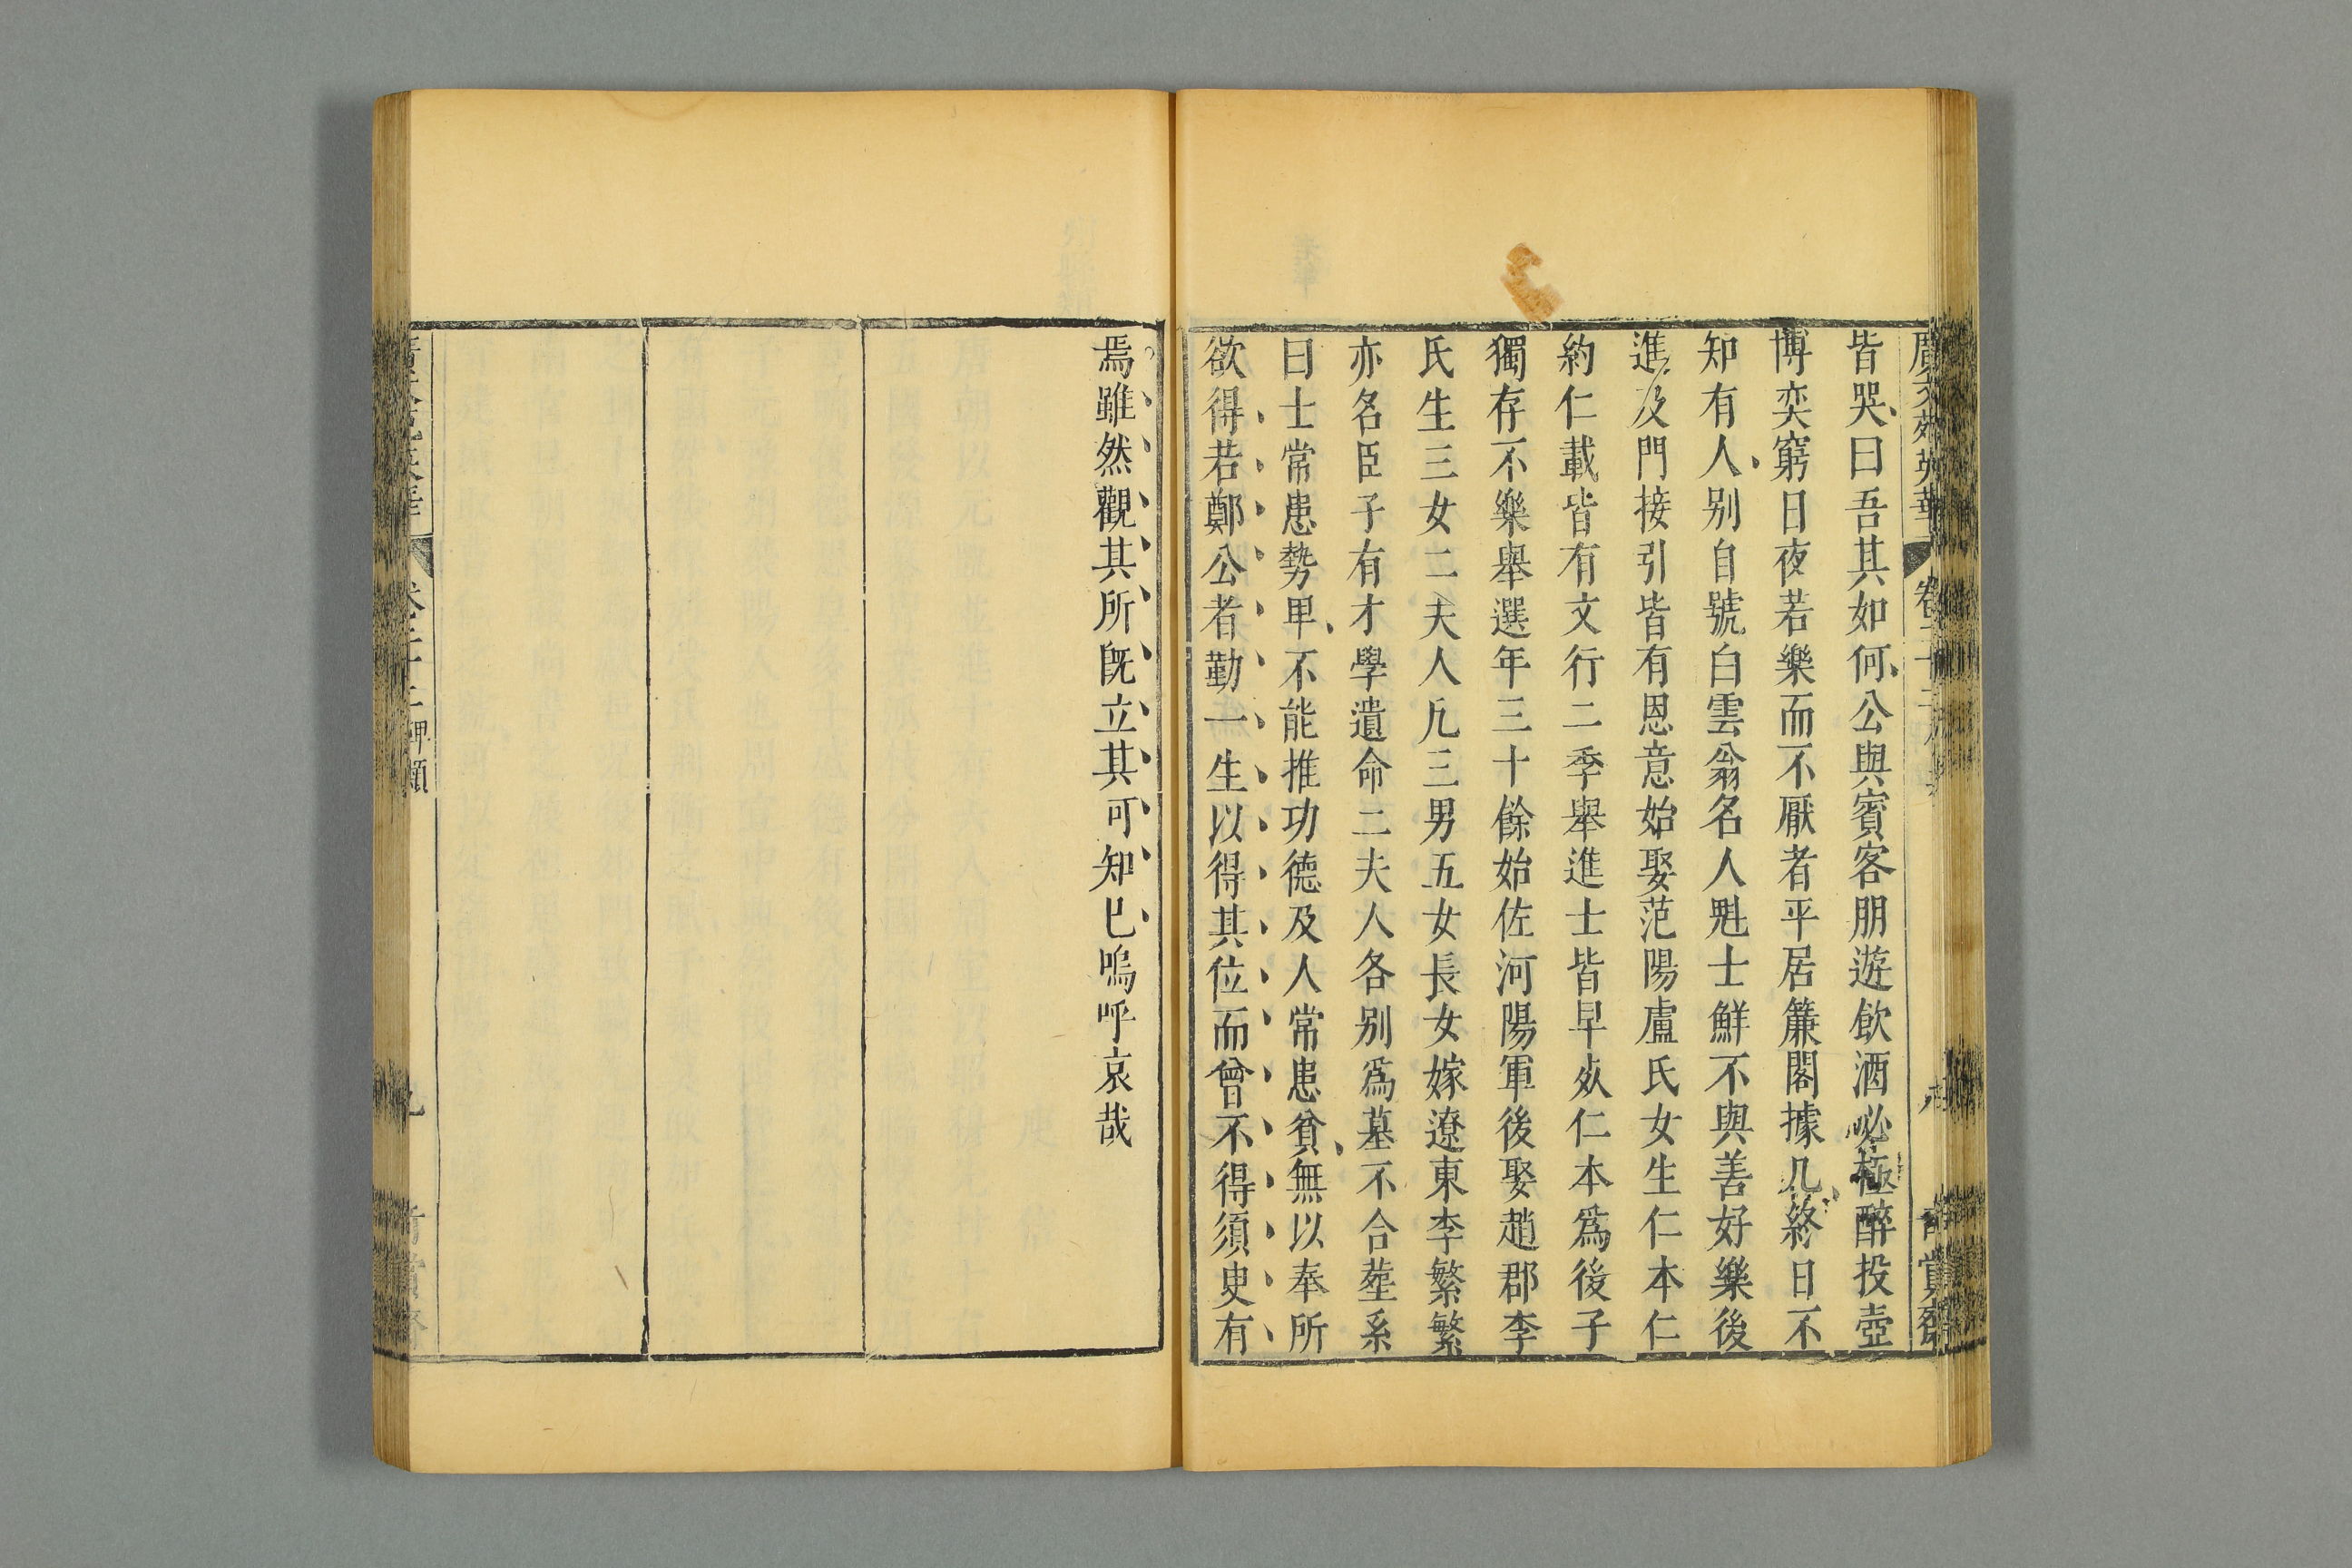 廣文苑英華
皆哭曰吾其如何公與賓客朋遊飲酒必極醉投壺
博奕窮日夜若樂而不厭者平居簾閣據几終日不
知有人别自號白雲翁名人魁士鮮不與善好樂後
進及門接引皆有恩意始娶范陽盧氏女生仁本仁
約仁載皆有文行二季舉進士皆早死仁本爲後子
獨存不樂舉選年三十餘始佐河陽軍後娶趙郡李
氏生三女二夫人凡三男五女長女嫁遼東李繁繁
亦名臣子有才學遺命二夫人各别爲墓不合塟系
曰士常患勢卑不能推功德及人常患貧無以奉所
欲得若鄭公者勤一生以得其位而曾不得須臾有
焉雖然觀其所旣立其可知巳嗚呼哀哉
碑類
九